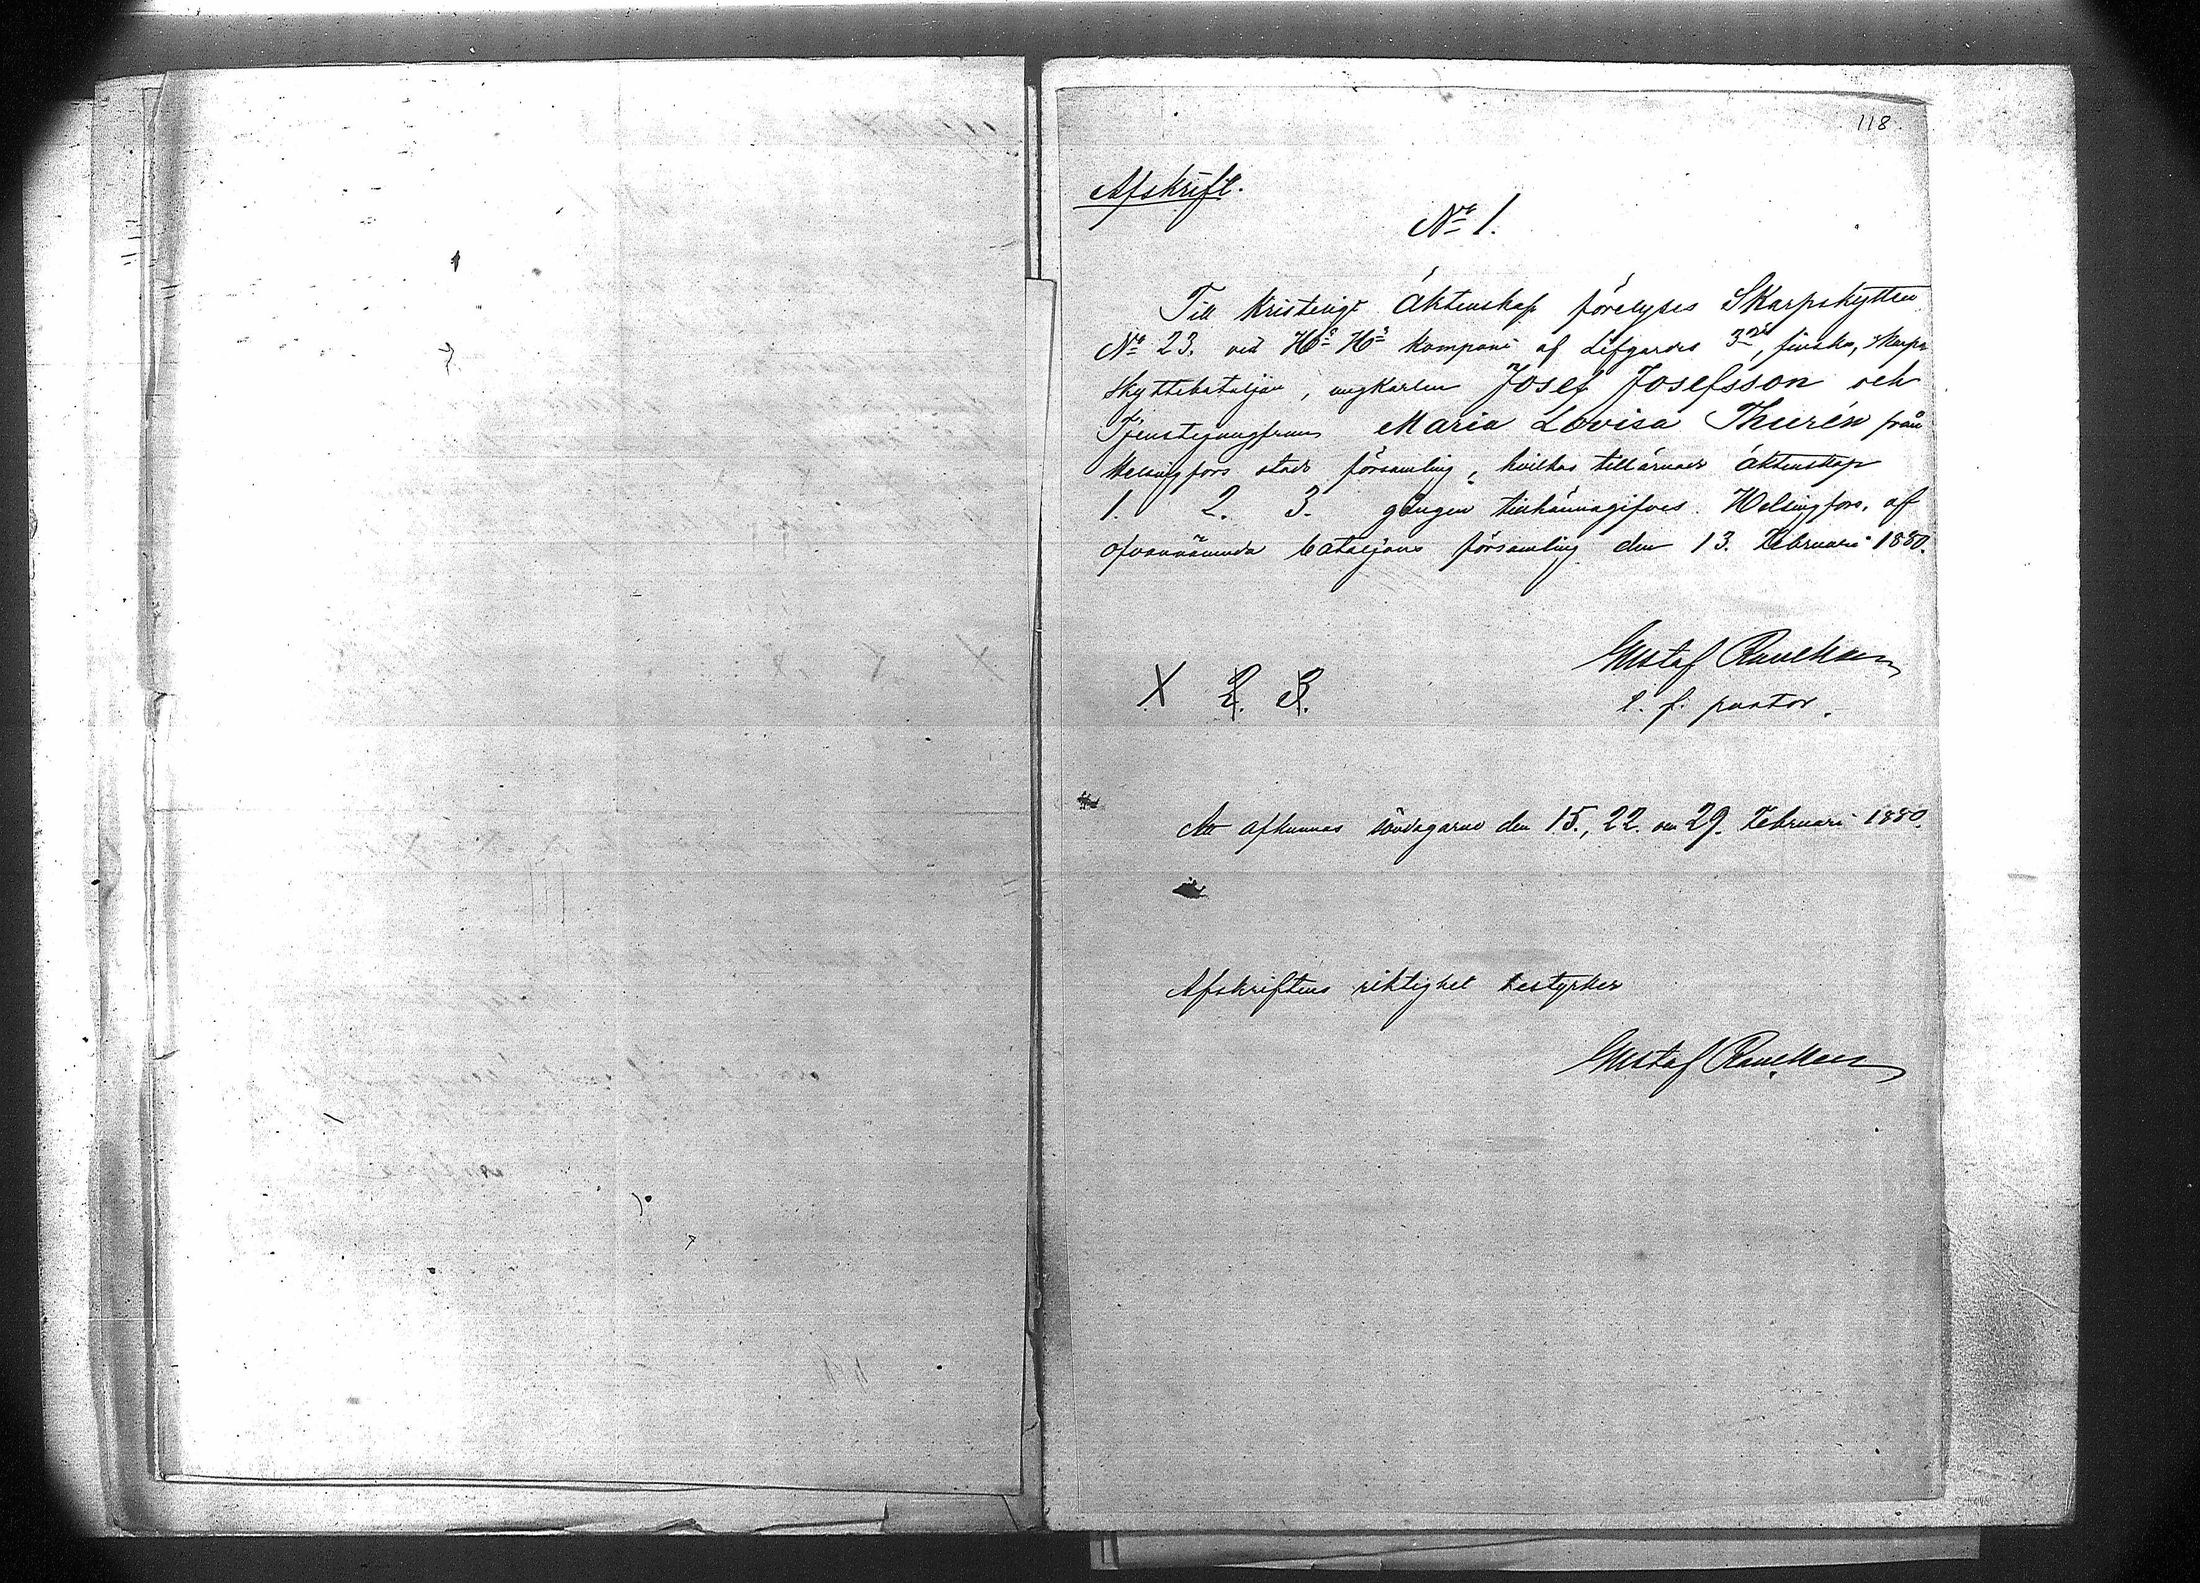 118.
Afskrift.
No 1.
Till kristeligt äktenskap förelyses Skarpskytten
No 23. vid Hs Hs kompani af Lifgardes 3dje, finska, skarp-
skyttebataljon, ungkarlen Josef Josefsson och
Tjenstejungfrun Maria Lovisa Thurén från
Helsingfors stads församling, hvilkas tillärnade äktenskap
1. 2. 3. gången tillkännagifves. Helsingfors, af
ofvannämnda bataljons församling den 13. Februari 1880.
Gustaf Rauchman
t. f. pastor.
X 2. 3.
Att afkunnas söndagarne den 15., 22. och 29. Februari 1880.
Afskriftens riktighet bestyrker
Gustaf